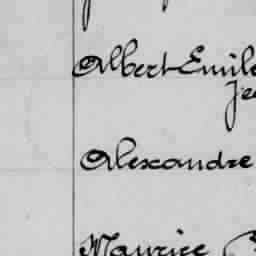 Albert Emile
Alexandre
Maurice